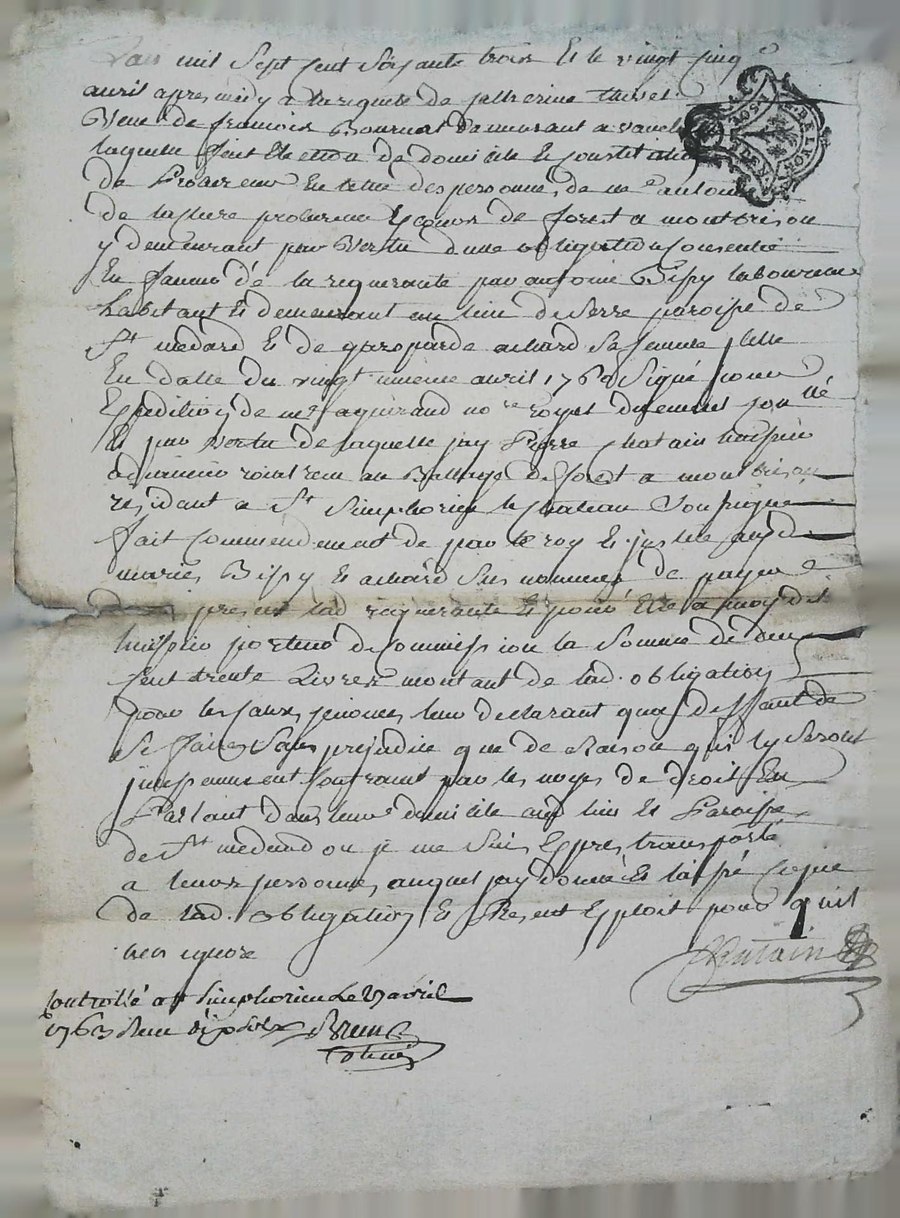 mil Sept Cent Soixante trois Et le vingt Cinq
avril apres midy a la requete de Catherine
veuve de francois Bournat demeurant a
laquelle fait Election de domicile Et Constitution
de Procureur En letude Et personne de me antoine
de procureur Es cours de forest a montbrison
y demeurant par vertu dune obligation Consentie
En faveur de la requerante par antoine Bissy laboureur
habitant Et demeurant au lieu de Serre paroisse de
St medard Et de achard Sa femme Icelle
En datte du vingt unieme avril 1760 Signé pour
Expedition de me no re royal duement
Et par vertu de laquelle jay Pierre Chatain huissier
au Balliage de forest a montbrison
residant a St Simphorien le chateau Soussigné
fait Commendement de par le roy Et justice aud
mariés Bissy Et achard Sus nommés de payer
present lad requerante Et pour Elle a moy dit
huissier porteur de Commission la Somme de deux
Cent trente Livres montant de lad. obligation
pour les Causes y enoncés leur declarant qua deffaut de
Ce faire Sans prejudice que de raison quils y Seront
Contraint par les voyes de droit En
Parlant dans leur domicile aud lieu Et Paroisse
de St medard ou je me Suis Expres transporté
a leurs personnes auquel jay donné Et laissé Copie
de lad. obligation Et Present Exploit pour quil
nen ignore
Chatain
Controllé a St Simphorien Le avril
1763 Reçu